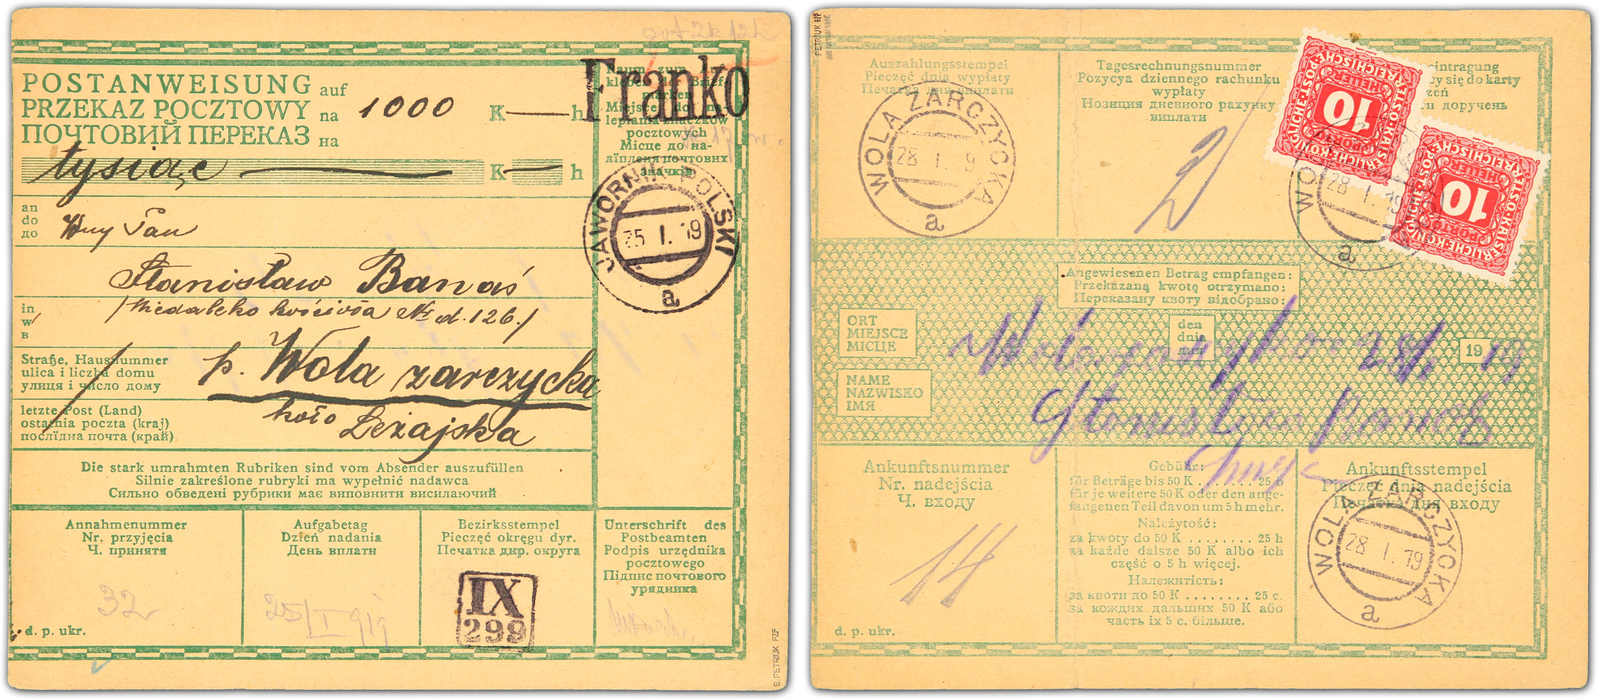 POSTANWEISUNG auf
PRZEKAZ POCZTOWY na
ПОЧТОВИЙ ПЕРЕКАЗ на
1000 K h
Franko
tysiąc K h
Miejsce do na-
lepiania znaczków
pocztowych
Місце до на-
ліплення почтових
значків
JAWORNIK POLSKI
25 I. 19
a
an
do
до
Wny Pan
Stanisław Banaś
in
w
в
/Niedaleko kościoła № d. 126./
Straße, Hausnummer
ulica i liczba domu
улиця і число дому
p. Wola zarczycka
letzte Post (Land)
ostatnia poczta (kraj)
послїдна почта (край)
koło
Leżajska
Die stark umrahmten Rubriken sind vom Absender auszufüllen
Silnie zakreślone rubryki ma wypełnić nadawca
Сильно обведені рубрики має виповнити висилаючий
Annahmenummer
Nr. przyjęcia
Ч. принятя
32
Aufgabetag
Dzień nadania
День вплати
25/I 919
Bezirksstempel
Pieczęć okręgu dyr.
Печатка дир. округа
IX
299
Unterschrift des
Postbeamten
Podpis urzędnika
pocztowego
Підпис почтового
урядника
d. p. ukr.
E. PETRIUK PZF
Auszahlungsstempel
Pieczęć dnia wypłaty
Печатка дня виплати
WOLA ZARCZYCKA
28 I. 19
a
Tagesrechnungsnummer
Pozycya dziennego rachunku
wypłaty
Позиция дневного рахунку
виплати
2
10
HELLER
10
HELLER
WOLA
28 I. 19
a
Angewiesenen Betrag empfangen:
Przekazaną kwotę otrzymano:
Переказану квоту відобрано:
ORT
MIEJSCE
МІСЦЕ
den
dnia
дня
19
NAME
NAZWISKO
ІМЯ
Ankunftsnummer
Nr. nadejścia
Ч. входу
14
Gebühr:
für Beträge bis 50 K . . . . . 25 h
für je weitere 50 K oder den ange-
fangenen Teil davon um 5 h mehr.
Należytość:
za kwoty do 50 K . . . . . . . . 25 h
za każde dalsze 50 K albo ich
część o 5 h więcej.
Належитість:
за квоти до 50 K . . . . . . . . 25 с.
за кождих дальших 50 K або
часть їх 5 с. більше.
Ankunftsstempel
Pieczęć dnia nadejścia
Печатка дня входу
WOLA ZARCZYCKA
28 I. 19
a
d. p. ukr.